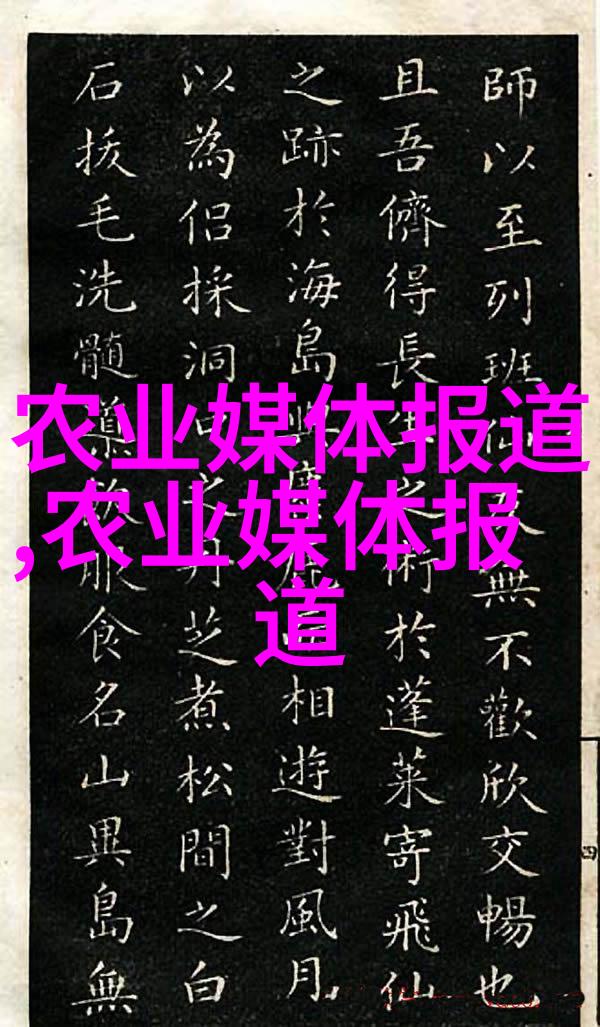 師以至列班仙無不歡欣交暢也
且吾儕得長生之術於蓬萊寄飛仙
之跡於海島相遊對風月
以為侣採洞之丹芝煮松間之白
石拔毛洗髓服食名山異島無
農业媒体报道
,农业媒体报
道
四